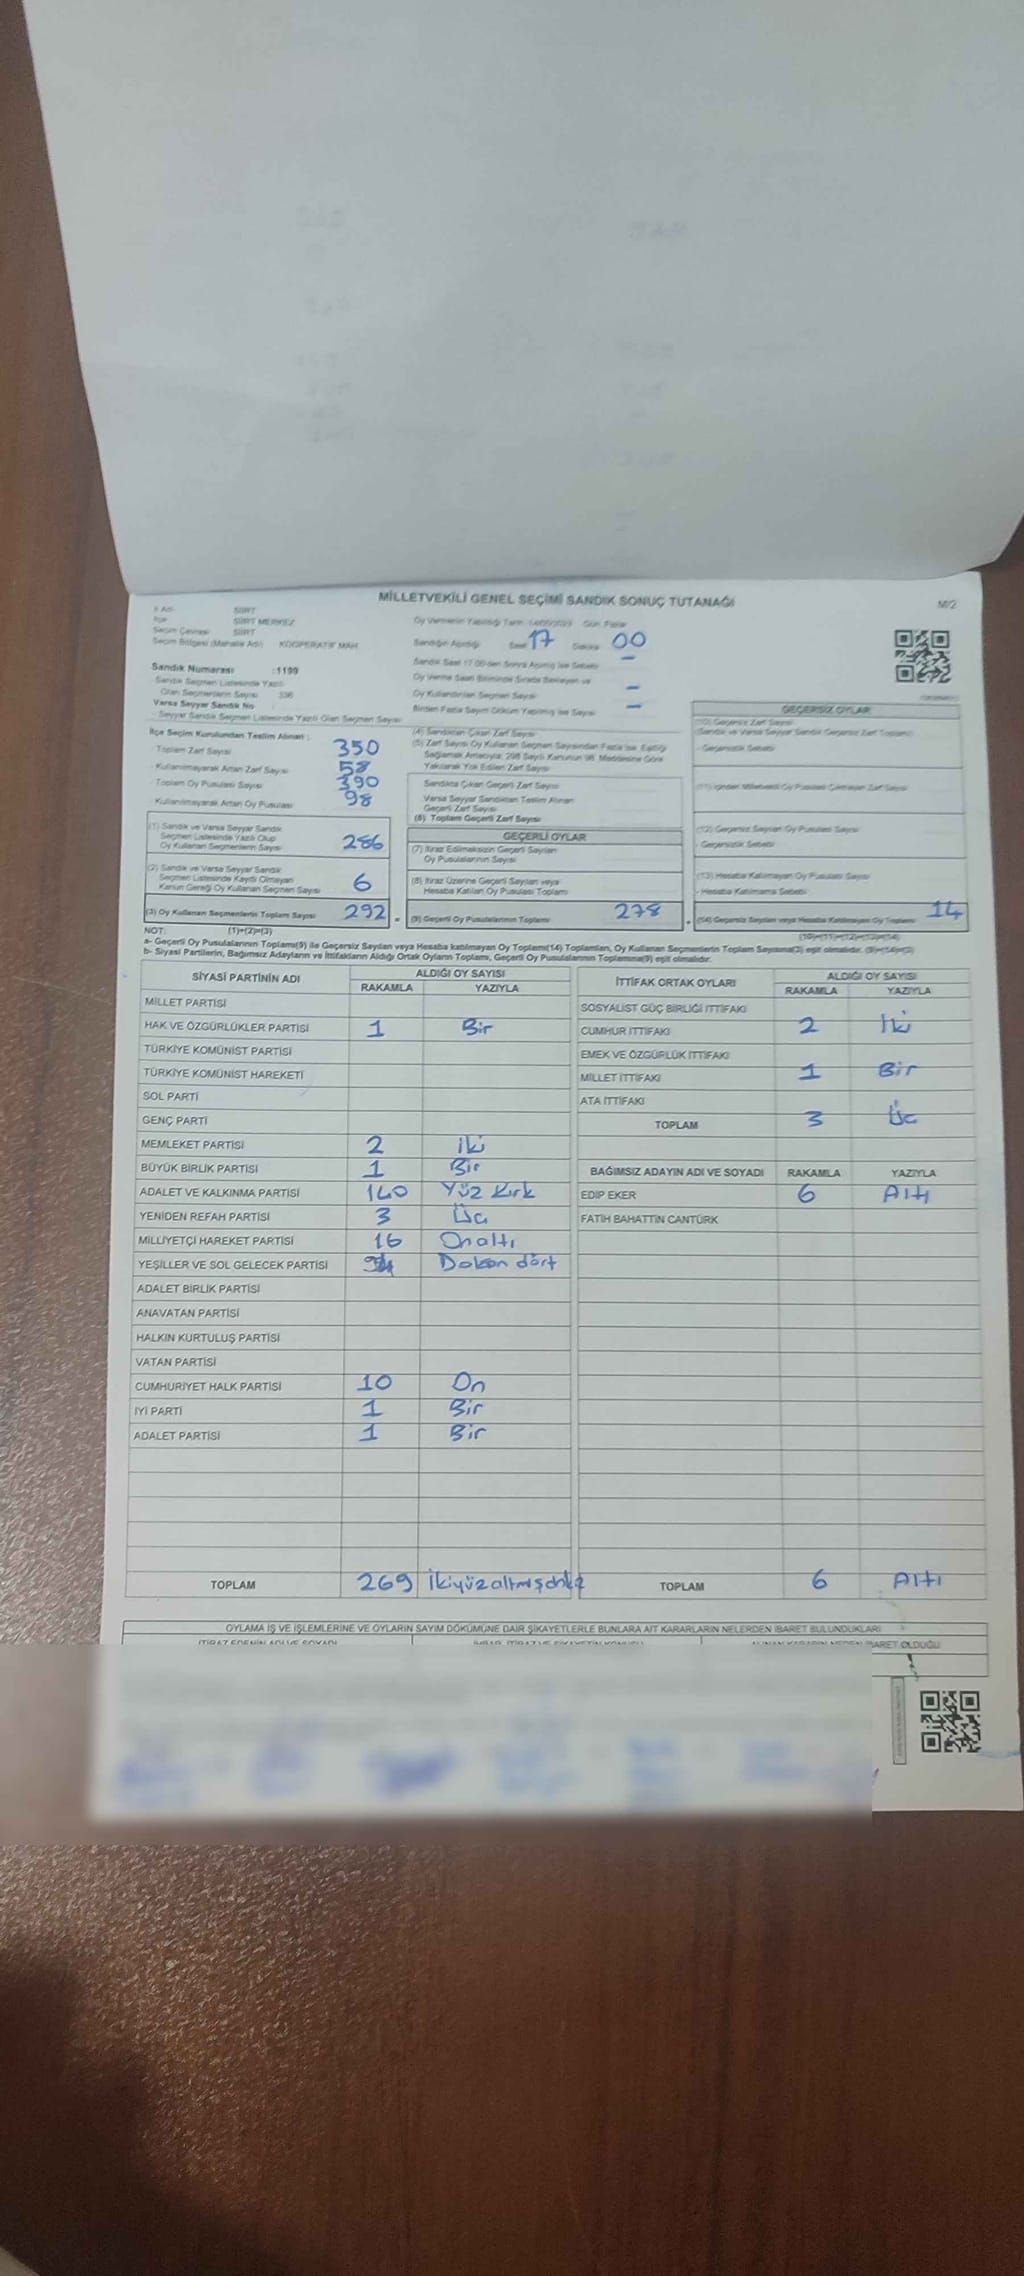 MİLLETVEKİLİ GENEL SEÇİMİ SANDIK SONUÇ TUTANAĞI
M/2
İl Adı SİİRT
İlçe SİİRT MERKEZ
Seçim Çevresi SİİRT
Seçim Bölgesi (Mahalle Adı) KOOPERATİF MAH.
Sandık Numarası :1199
Sandık Seçmen Listesinde Yazılı
Olan Seçmenlerin Sayısı 336
Varsa Seyyar Sandık No
Seyyar Sandık Seçmen Listesinde Yazılı Olan Seçmen Sayısı
Oy Vermenin Yapıldığı Tarih 14/05/2023 Gün Pazar
Sandığın Açıldığı Saat 17 Dakika 00
Sandık Saat 17.00'den Sonra Açılmış İse Sebebi –
Oy Verme Saati Bitiminde Sırada Bekleyen ve
Oy Kullandırılan Seçmen Sayısı –
Birden Fazla Sayım Döküm Yapılmış İse Sayısı –
İlçe Seçim Kurulundan Teslim Alınan :
Toplam Zarf Sayısı 350
Kullanılmayarak Artan Zarf Sayısı 58
Toplam Oy Pusulası Sayısı 390
Kullanılmayarak Artan Oy Pusulası 98
(1) Sandık ve Varsa Seyyar Sandık
Seçmen Listesinde Yazılı Olup
Oy Kullanan Seçmenlerin Sayısı 286
(2) Sandık ve Varsa Seyyar Sandık
Seçmen Listesinde Kayıtlı Olmayan
Kanun Gereği Oy Kullanan Seçmen Sayısı 6
(3) Oy Kullanan Seçmenlerin Toplam Sayısı 292 =
(4) Sandıktan Çıkan Zarf Sayısı
(5) Zarf Sayısı Oy Kullanan Seçmen Sayısından Fazla ise, Eşitliği
Sağlamak Amacıyla, 298 Sayılı Kanunun 98. Maddesine Göre
Yakılarak Yok Edilen Zarf Sayısı
Sandıkta Çıkan Geçerli Zarf Sayısı
Varsa Seyyar Sandıktan Teslim Alınan
Geçerli Zarf Sayısı
(6) Toplam Geçerli Zarf Sayısı
GEÇERLİ OYLAR
(7) İtiraz Edilmeksizin Geçerli Sayılan
Oy Pusulalarının Sayısı
(8) İtiraz Üzerine Geçerli Sayılan veya
Hesaba Katılan Oy Pusulası Toplamı
(9) Geçerli Oy Pusulalarının Toplamı 278
GEÇERSİZ OYLAR
(10) Geçersiz Zarf Sayısı
(Sandık ve Varsa Seyyar Sandık Geçersiz Zarf Toplamı)
- Geçersizlik Sebebi
(11) İçinden Milletvekili Oy Pusulası Çıkmayan Zarf Sayısı
(12) Geçersiz Sayılan Oy Pusulası Sayısı
- Geçersizlik Sebebi
(13) Hesaba Katılmayan Oy Pusulası Sayısı
- Hesaba Katılmama Sebebi
(14) Geçersiz Sayılan veya Hesaba Katılmayan Oy Toplamı 14
(10)+(11)+(12)+(13)=(14)
NOT: (1)+(2)=(3)
a- Geçerli Oy Pusulalarının Toplamı(9) ile Geçersiz Sayılan veya Hesaba katılmayan Oy Toplamı(14) Toplamları, Oy Kullanan Seçmenlerin Toplam Sayısına(3) eşit olmalıdır. (9)+(14)=(3)
b- Siyasi Partilerin, Bağımsız Adayların ve İttifakların Aldığı Ortak Oyların Toplamı, Geçerli Oy Pusulalarının Toplamına(9) eşit olmalıdır.
SİYASİ PARTİNİN ADI ALDIĞI OY SAYISI
RAKAMLA YAZIYLA
MİLLET PARTİSİ
HAK VE ÖZGÜRLÜKLER PARTİSİ 1 Bir
TÜRKİYE KOMÜNİST PARTİSİ
TÜRKİYE KOMÜNİST HAREKETİ
SOL PARTİ
GENÇ PARTİ
MEMLEKET PARTİSİ 2 iki
BÜYÜK BİRLİK PARTİSİ 1 Bir
ADALET VE KALKINMA PARTİSİ 140 Yüz Kırk
YENİDEN REFAH PARTİSİ 3 Üç
MİLLİYETÇİ HAREKET PARTİSİ 16 Onaltı
YEŞİLLER VE SOL GELECEK PARTİSİ 94 Doksan dört
ADALET BİRLİK PARTİSİ
ANAVATAN PARTİSİ
HALKIN KURTULUŞ PARTİSİ
VATAN PARTİSİ
CUMHURİYET HALK PARTİSİ 10 On
İYİ PARTİ 1 Bir
ADALET PARTİSİ 1 Bir
TOPLAM 269
İTTİFAK ORTAK OYLARI ALDIĞI OY SAYISI
RAKAMLA YAZIYLA
SOSYALİST GÜÇ BİRLİĞİ İTTİFAKI
CUMHUR İTTİFAKI 2 İki
EMEK VE ÖZGÜRLÜK İTTİFAKI
MİLLET İTTİFAKI 1 Bir
ATA İTTİFAKI
TOPLAM 3 Üç
BAĞIMSIZ ADAYIN ADI VE SOYADI RAKAMLA YAZIYLA
EDİP EKER 6 Altı
FATİH BAHATTİN CANTÜRK
TOPLAM 6 Altı
OYLAMA İŞ VE İŞLEMLERİNE VE OYLARIN SAYIM DÖKÜMÜNE DAİR ŞİKAYETLERLE BUNLARA AİT KARARLARIN NELERDEN İBARET BULUNDUKLARI